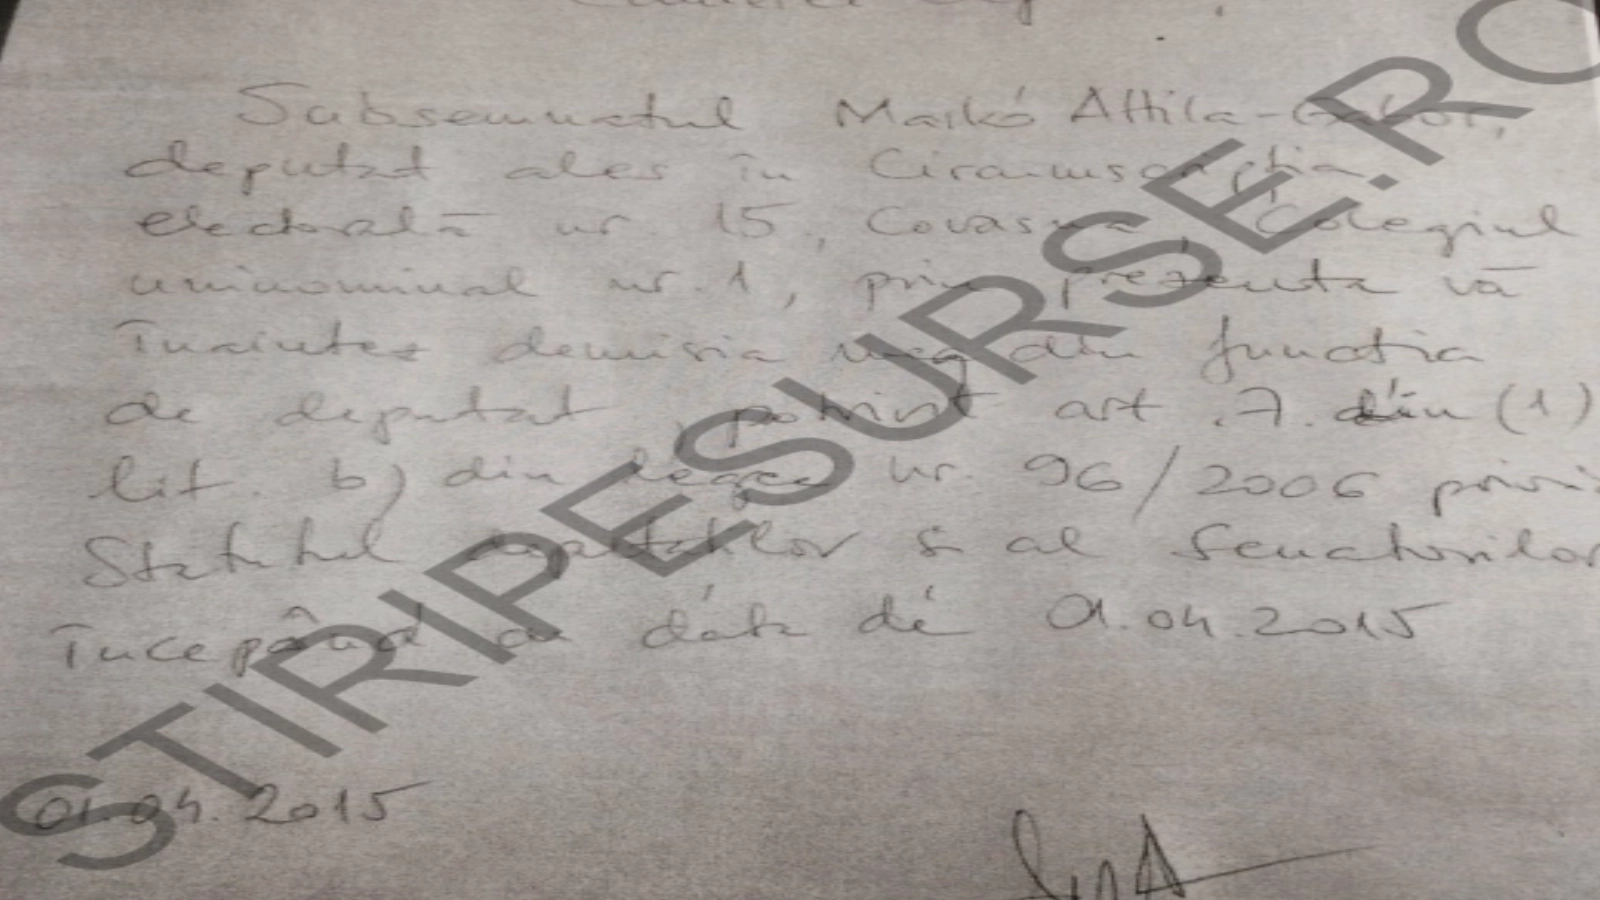 Subsemnatul Markó Attila-Gabor,
deputat ales în Circumscripția
electorală nr. 15, Covasna, Colegiul
uninominal nr. 1, prin prezenta vă
înaintez demisia mea din funcția
de deputat, potrivit art. 7. din (1)
lit. b) din legea nr. 96/2006 privi
Statutul deputatilor și al Senatorilor
începând cu dáta dé 01.04.2015
01.04.2015
STIRIPESURSE.RO